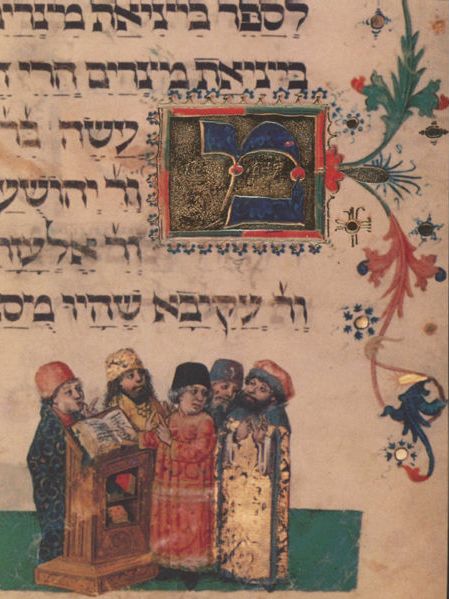 לספר ביציאת מצרי
ביציאת מצרים הרי
מעשה בר'
ור' יהושע
ור' אלעז
ור' עקיבא שהיו מסו